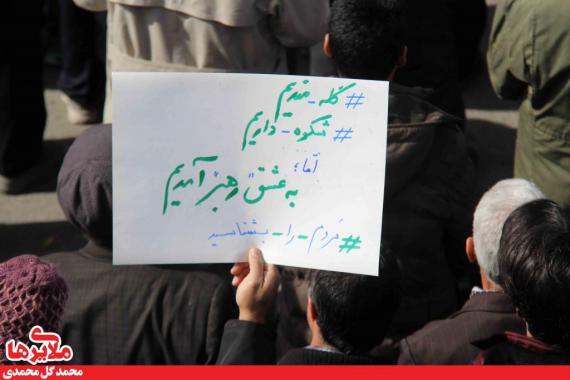 #گله_مندیم
#شکوه_داریم
امّا؛
به عشق رهبر آمدیم
#مردم-را-بشناسید
ملایری‌ها
محمد گل محمدی